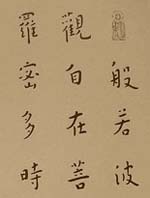 般若波
觀自在菩
羅蜜多時